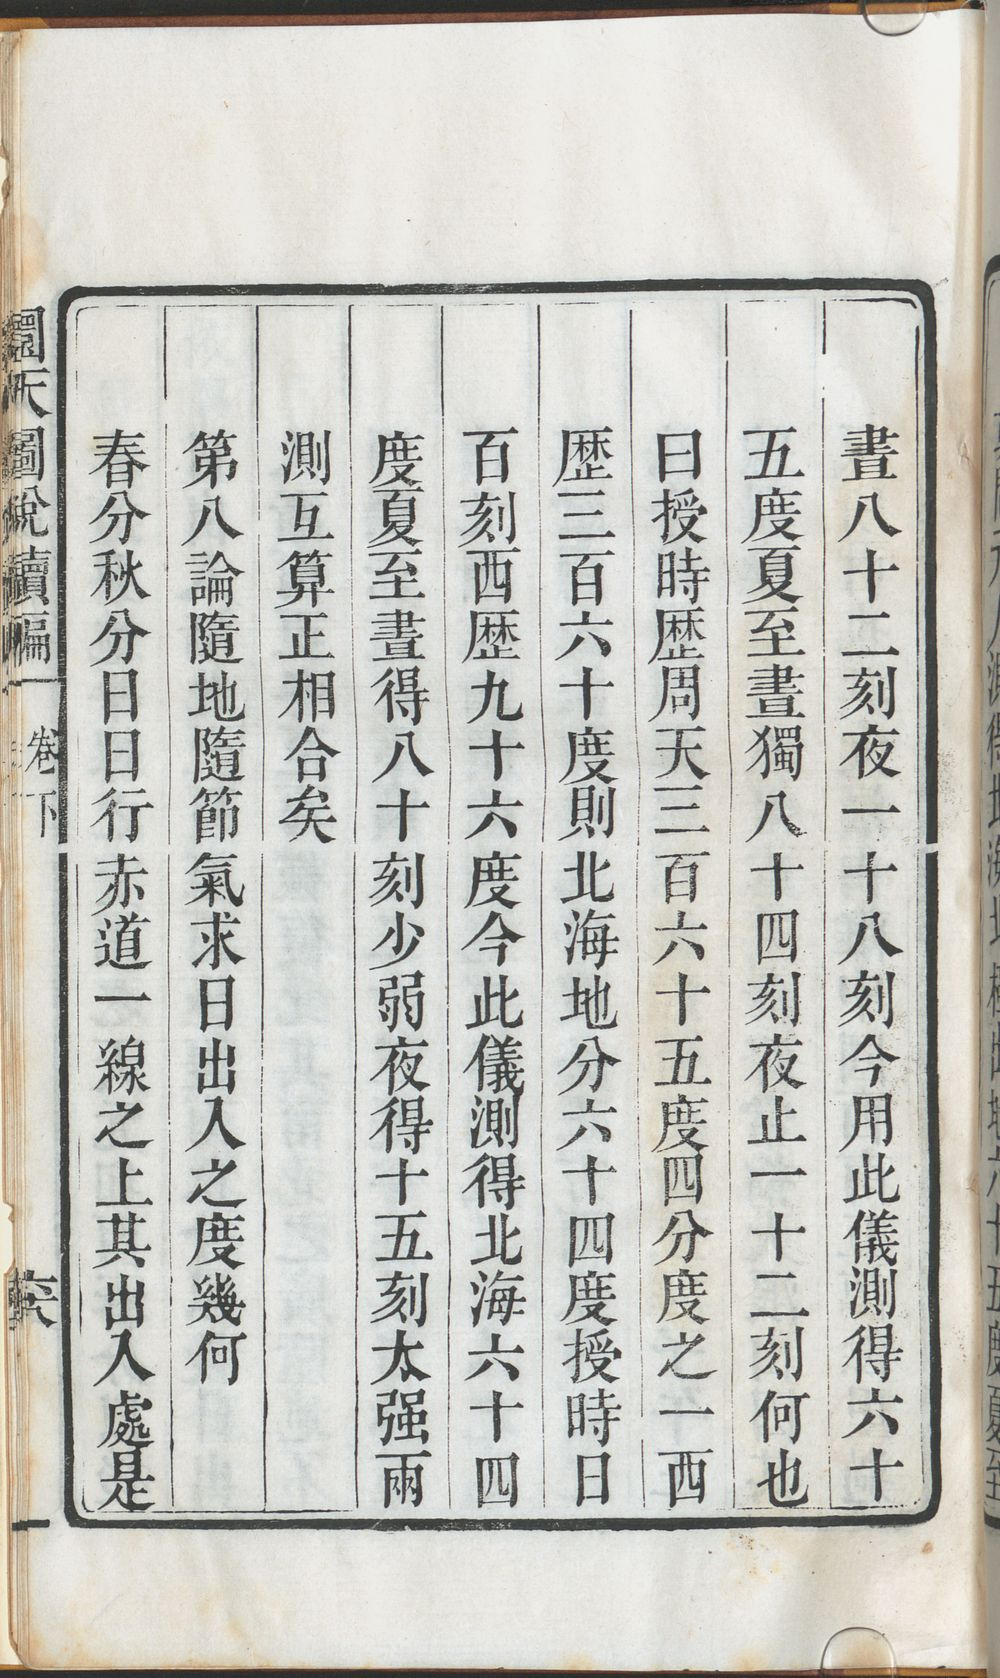 晝八十二刻夜一十八刻今用此儀測得六十
五度夏至晝獨八十四刻夜止一十二刻何也
曰授時歷周天三百六十五度四分度之一西
歷三百六十度則北海地分六十四度授時日
百刻西歷九十六度今此儀測得北海六十四
度夏至晝得八十刻少弱夜得十五刻太强兩
測互算正相合矣
第八論隨地隨節氣求日出入之度幾何
春分秋分日日行赤道一線之上其出入處是
圜天圖說續編
卷下